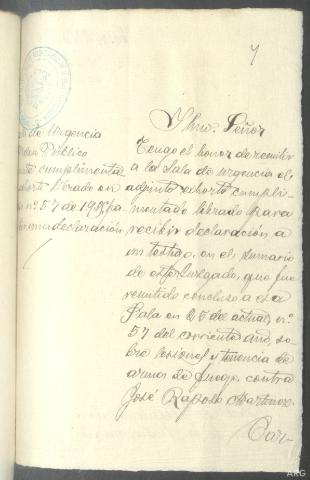 7
de Urgencia
Orden Público
cumplimenta
exhorto librado en
nº 57 de 1935 pa
declaración
Ilmo. Señor
Tengo el honor de remitir
a la Sala de urgencia el
adjunto exhorto cumpli-
mentado librado para
recibir declaración a
un testigo, en el sumario
de este Juzgado, que fue
remitido concluso a esa
Sala en 25 del actual, nº
57 del corriente año, so-
bre lesiones y tenencia de
armas de fuego contra
José Raposo Martinez.
Car-
ARG